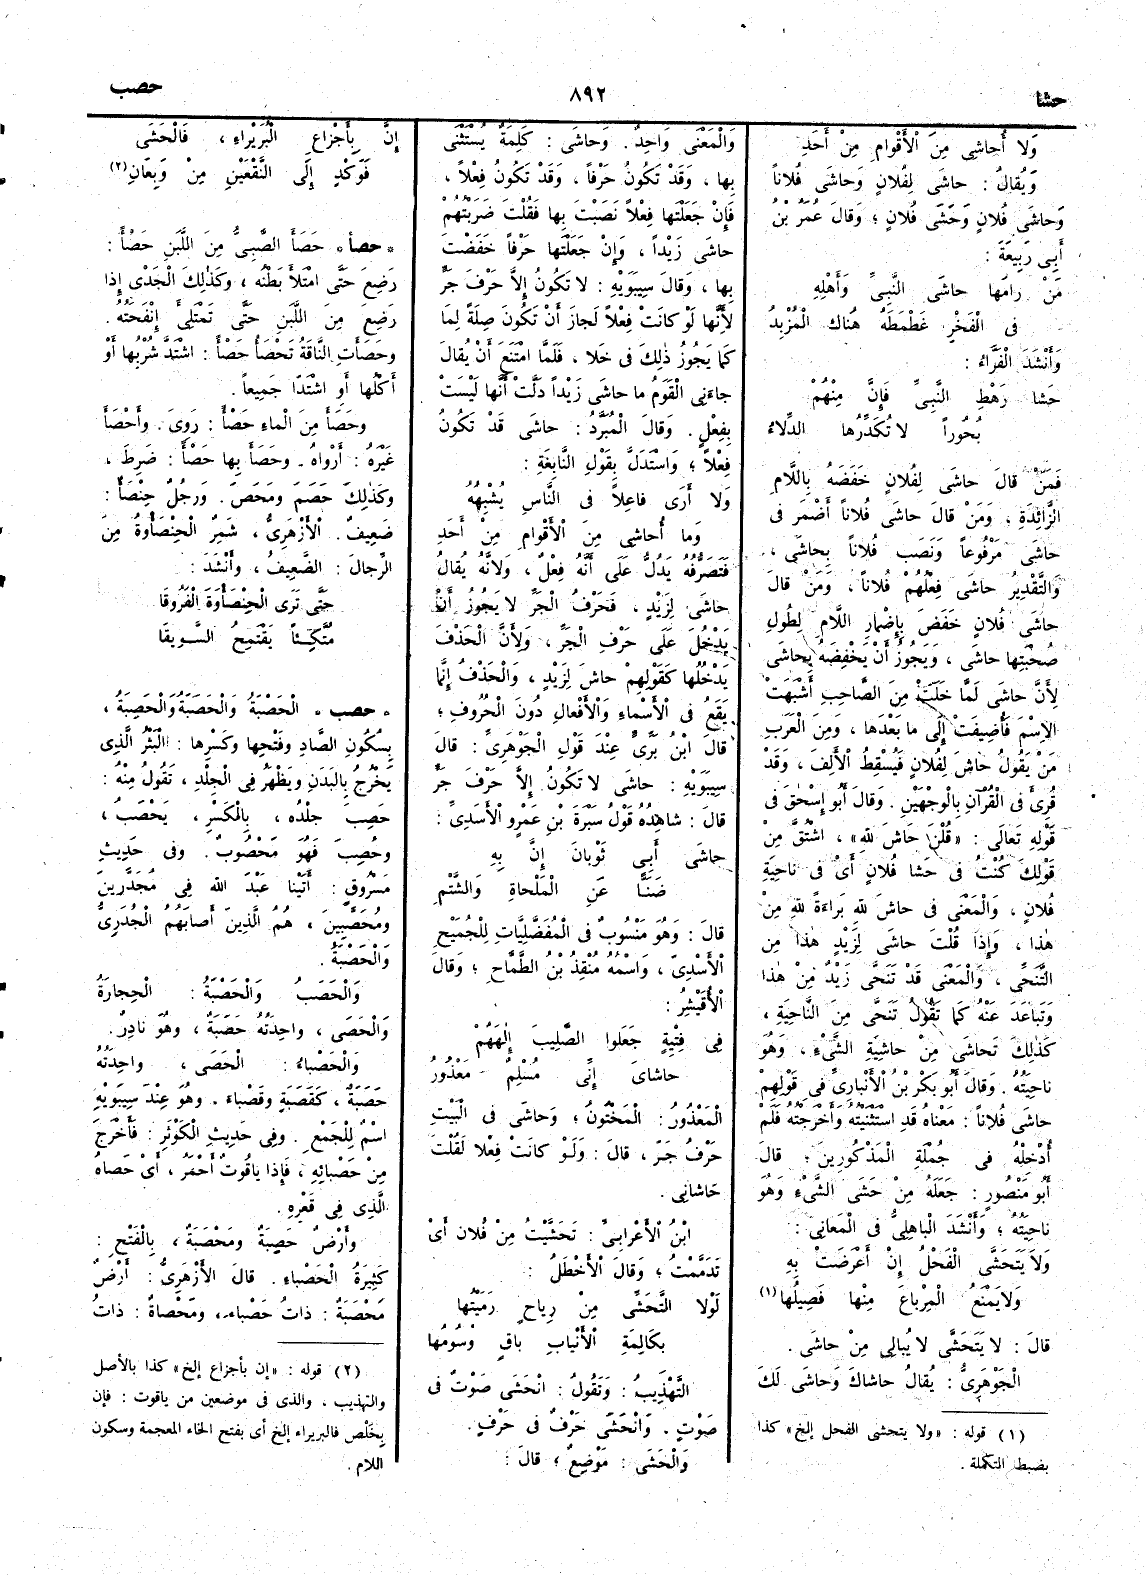 حشا
٨٩٢
حصب
وَلا أُحاشِى مِنَ الْأَقْوامِ مِنْ أَحَدِ
وَيُقالُ : حاشَى لِفُلانٍ وَحاشَى فُلاناً
وَحاشَى فُلانٍ وَحَشَى فُلانٍ ؛ وَقالَ عُمَرُ بْنُ
أَبِى رَبِيعَةَ :
مَنْ رامَها حاشَى النَّبِىِّ وَأَهْلِهِ
فِى الْفَخْرِ غَطْمَطَهُ هُناكَ الْمُزْبِدُ
وَأَنْشَدَ الْفَرَّاءُ :
حَشا رَهْطِ النَّبِىِّ فَإِنَّ مِنْهُمْ
بُحُوراً لا تُكَدِّرُها الدِّلاءُ
فَمَنْ قالَ حاشَى لِفُلانٍ خَفَضَهُ بِاللَّامِ
الزَّائِدَةِ ، وَمَنْ قالَ حاشَى فُلاناً أَضْمَرَ فِى
حاشَى مَرْفُوعاً وَنَصَبَ فُلاناً بِحاشَى ،
وَالتَّقْدِيرُ حاشَى فِعْلُهُمْ فُلاناً ، وَمَنْ قالَ
حاشَى فُلانٍ خَفَضَ بِإِضْمارِ اللَّامِ لِطُولِ
صُحْبَتِها حاشَى ، وَيَجُوزُ أَنْ يَخْفِضَهُ بِحاشَى
لِأَنَّ حاشَى لَمَّا خَلَتْ مِنَ الصَّاحِبِ أَشْبَهَتْ
الِاسْمَ فَأُضِيفَتْ إِلَى ما بَعْدَها ، وَمِنَ الْعَرَبِ
مَنْ يَقُولُ حاشَ لِفُلانٍ فَيُسْقِطُ الْأَلِفَ ، وَقَدْ
قُرِئَ فِى الْقُرْآنِ بِالْوَجْهَيْنِ . وَقالَ أَبُو إِسْحقَ فِى
قَوْلِهِ تَعالَى : «قُلْنَ حاشَ لِلّٰهِ» ، اشْتُقَّ مِنْ
قَوْلِكَ كُنْتُ فِى حَشا فُلانٍ أَىْ فِى ناحِيَةِ
فُلانٍ ، وَالْمَعْنَى فِى حاشَ لِلّٰهِ بَراءَةً لِلّٰهِ مِنْ
هٰذا ، وَإِذا قُلْتَ حاشَى لِزَيْدٍ هٰذا مِنَ
التَّنَحِّى ، وَالْمَعْنَى قَدْ تَنَحَّى زَيْدٌ مِنْ هٰذا
وَتَباعَدَ عَنْهُ كَما تَقُولُ تَنَحَّى مِنَ النَّاحِيَةِ ،
كَذٰلِكَ تَحاشَى مِنْ حاشِيَةِ الشَّىْءِ ، وَهُوَ
ناحِيَتُهُ . وَقالَ أَبُو بَكْرِ بْنُ الْأَنْبارِىِّ فِى قَوْلِهِمْ
حاشَى فُلاناً : مَعْناهُ قَدِ اسْتَثْنَيْتُهُ وَأَخْرَجْتُهُ فَلَمْ
أُدْخِلْهُ فِى جُمْلَةِ الْمَذْكُورِينَ ؛ قالَ
أَبُو مَنْصُورٍ : جَعَلَهُ مِنْ حَشَى الشَّىْءِ وَهُوَ
ناحِيَتُهُ ؛ وَأَنْشَدَ الْباهِلِىُّ فِى الْمَعانِى :
وَلا يَتَحَشَّى الْفَحْلُ إِنْ أَعْرَضَتْ بِهِ
وَلا يَمْنَعُ الْمِرْباعَ مِنْها فَصِيلُها (١)
قالَ : لا يَتَحَشَّى لا يُبالِى مِنْ حاشَى .
الْجَوْهَرِىُّ : يُقالُ حاشاكَ وَحاشَى لَكَ
(١) قوله : «ولا يتحشى الفحل إلخ» كذا
بضبط التكملة .
وَالْمَعْنَى واحِدٌ . وَحاشَى : كَلِمَةٌ يُسْتَثْنَى
بِها ، وَقَدْ تَكُونُ حَرْفاً ، وَقَدْ تَكُونُ فِعْلاً ،
فَإِنْ جَعَلْتَها فِعْلاً نَصَبْتَ بِها فَقُلْتَ ضَرَبْتُهُمْ
حاشَى زَيْداً ، وَإِنْ جَعَلْتَها حَرْفاً خَفَضْتَ
بِها ، وَقالَ سِيبَوَيْهِ : لا تَكُونُ إِلاَّ حَرْفَ جَرٍّ
لِأَنَّها لَوْ كانَتْ فِعْلاً لَجازَ أَنْ تَكُونَ صِلَةً لِما
كَما يَجُوزُ ذٰلِكَ فِى خَلا ، فَلَمَّا امْتَنَعَ أَنْ يُقالَ
جاءَنِى الْقَوْمُ ما حاشَى زَيْداً دَلَّتْ أَنَّها لَيْسَتْ
بِفِعْلٍ . وَقالَ الْمُبَرِّدُ : حاشَى قَدْ تَكُونُ
فِعْلاً ؛ وَاسْتَدَلَّ بِقَوْلِ النَّابِغَةِ :
وَلا أَرَى فاعِلاً فِى النَّاسِ يُشْبِهُهُ
وَما أُحاشِى مِنَ الْأَقْوامِ مِنْ أَحَدِ
فَتَصَرُّفُهُ يَدُلُّ عَلَى أَنَّهُ فِعْلٌ ، وَلِأَنَّهُ يُقالُ
حاشَى لِزَيْدٍ ، فَحَرْفُ الْجَرِّ لا يَجُوزُ أَنْ
يَدْخُلَ عَلَى حَرْفِ الْجَرِّ ، وَلِأَنَّ الْحَذْفَ
يَدْخُلُها كَقَوْلِهِمْ حاشَ لِزَيْدٍ ، وَالْحَذْفُ إِنَّما
يَقَعُ فِى الْأَسْماءِ وَالْأَفْعالِ دُونَ الْحُرُوفِ ؛
قالَ ابْنُ بَرِّىّ عِنْدَ قَوْلِ الْجَوْهَرِىِّ : قالَ
سِيبَوَيْهِ : حاشَى لا تَكُونُ إِلاَّ حَرْفَ جَرٍّ
قالَ : شاهِدُهُ قَوْلُ سَبْرَةَ بْنِ عَمْرٍو الْأَسَدِىِّ :
حاشَى أَبِى ثَوْبانَ إِنَّ بِهِ
ضَنًّا عَنِ الْمَلْحاةِ وَالشَّتْمِ
قالَ : وَهُوَ مَنْسُوبٌ فِى الْمُفَضَّلِيَّاتِ لِلْجُمَيْحِ
الْأَسَدِىِّ ، وَاسْمُهُ مُنْقِذُ بْنُ الطَّمَّاحِ ؛ وَقالَ
الْأُقَيْشِرُ :
فِى فِتْيَةٍ جَعَلُوا الصَّلِيبَ إِلٰهَهُمْ
حاشاىَ إِنِّى مُسْلِمٌ مَعْذُورُ
الْمَعْذُورُ : الْمَخْتُونُ ؛ وَحاشَى فِى الْبَيْتِ
حَرْفُ جَرّ ، قالَ : وَلَوْ كانَتْ فِعْلاً لَقُلْتَ
حَاشانِى .
ابْنُ الْأَعْرابِىِّ : تَحَشَّيْتُ مِنْ فُلان أَىْ
تَذَمَّمْتُ ؛ وَقالَ الْأَخْطَلُ :
لَوْلا التَّحَشِّى مِنْ رِياحٍ رَمَيْتُها
بِكَالِمَةِ الْأَنْيابِ باقٍ وُسُومُها
التَّهْذِيبُ : وَتَقُولُ : انْحَشَى صَوْتٌ فِى
صَوْتٍ . وَانْحَشَى حَرْفٌ فِى حَرْفٍ .
وَالْحَشَى : مَوْضِعٌ ؛ قالَ :
إِنَّ بِأَجْزاعِ الْبُرَيْراءِ ، فَالْحَشَى
فَوَكْدٍ إِلَى النَّقْعَيْنِ مِنْ وَبِعَانِ (٢)
* حصأ * حَصَأَ الصَّبِىُّ مِنَ اللَّبَنِ حَصْأً :
رَضِعَ حَتَّى امْتَلَأَ بَطْنُهُ ، وَكَذٰلِكَ الْجَدْىُ إِذا
رَضِعَ مِنَ اللَّبَنِ حَتَّى تَمْتَلِئَ إِنْفَحَتُهُ .
وحَصَأَتِ النَّاقَةُ تَحْصَأُ حَصْأً : اشْتَدَّ شُرْبُها أَوْ
أَكْلُها أَوِ اشْتَدَّا جَمِيعاً .
وحَصَأَ مِنَ الْماءِ حَصْأً : رَوِىَ . وأَحْصَأَ
غَيْرَهُ : أَرْواهُ . وحَصَأَ بِها حَصْأً : ضَرِطَ ،
وَكَذٰلِكَ حَصَمَ ومَحَصَ . وَرَجُلٌ حِنْصَأٌ :
ضَعِيفٌ . الْأَزْهَرِىُّ ، شَمِرٌ الْحِنْصَأْوَةُ مِنَ
الرِّجالِ : الضَّعِيفُ ، وأَنْشَدَ :
حَتَّى تَرَى الْحِنْصَأْوَةَ الْفَرُوقَا
مُتَّكِئاً يَقْتَمِحُ السَّوِيقَا
* حصب * الْحَصْبَةُ وَالْحَصَبَةُ وَالْحَصِبَةُ ،
بِسُكُونِ الصَّادِ وفَتْحِها وكَسْرِها : الْبَثْرُ الَّذِى
يَخْرُجُ بِالْبَدَنِ وَيَظْهَرُ فِى الْجِلْدِ ، تَقُولُ مِنْهُ :
حَصِبَ جِلْدُه ، بِالْكَسْرِ ، يَحْصَبُ ،
وحُصِبَ فَهُوَ مَحْصُوبٌ . وفِى حَدِيثِ
مَسْرُوقٍ : أَتَيْنا عَبْدَ اللهِ فِى مُجَدَّرِينَ
ومُحَصَّبِينَ ، هُمُ الَّذِينَ أَصابَهُمُ الْجُدَرِىُّ
وَالْحَصْبَةُ .
وَالْحَصَبُ وَالْحَصْبَةُ : الْحِجارَةُ
وَالْحَصَى ، واحِدَتُهُ حَصَبَةٌ ، وهُوَ نادِرٌ .
وَالْحَصْباءُ : الْحَصَى ، واحِدَتُهُ
حَصَبَةٌ ، كَقَصَبَةٍ وقَصْباءَ . وهُوَ عِنْدَ سِيبَوَيْهِ
اسْمٌ لِلْجَمْعِ . وفِى حَدِيثِ الْكَوْثَرِ : فَأَخْرَجَ
مِنْ حَصْبائِهِ ، فَإِذا ياقُوتٌ أَحْمَرُ ، أَىْ حَصاهُ
الَّذِى فِى قَعْرِهِ .
وأَرْضٌ حَصِبَةٌ ومَحْصَبَةٌ ، بِالْفَتْحِ :
كَثِيرَةُ الْحَصْباءِ . قالَ الْأَزْهَرِىُّ : أَرْضٌ
مَحْصَبَةٌ : ذاتُ حَصْباء ، ومَحْصاةٌ : ذاتُ
(٢) قوله : «إن بأجزاع إلخ» كذا بالأصل
والتهذيب ، والذى فى موضعين من ياقوت : فإن
بِخَلْص فالبريراء إلخ أى بفتح الخاء المعجمة وسكون
اللام .